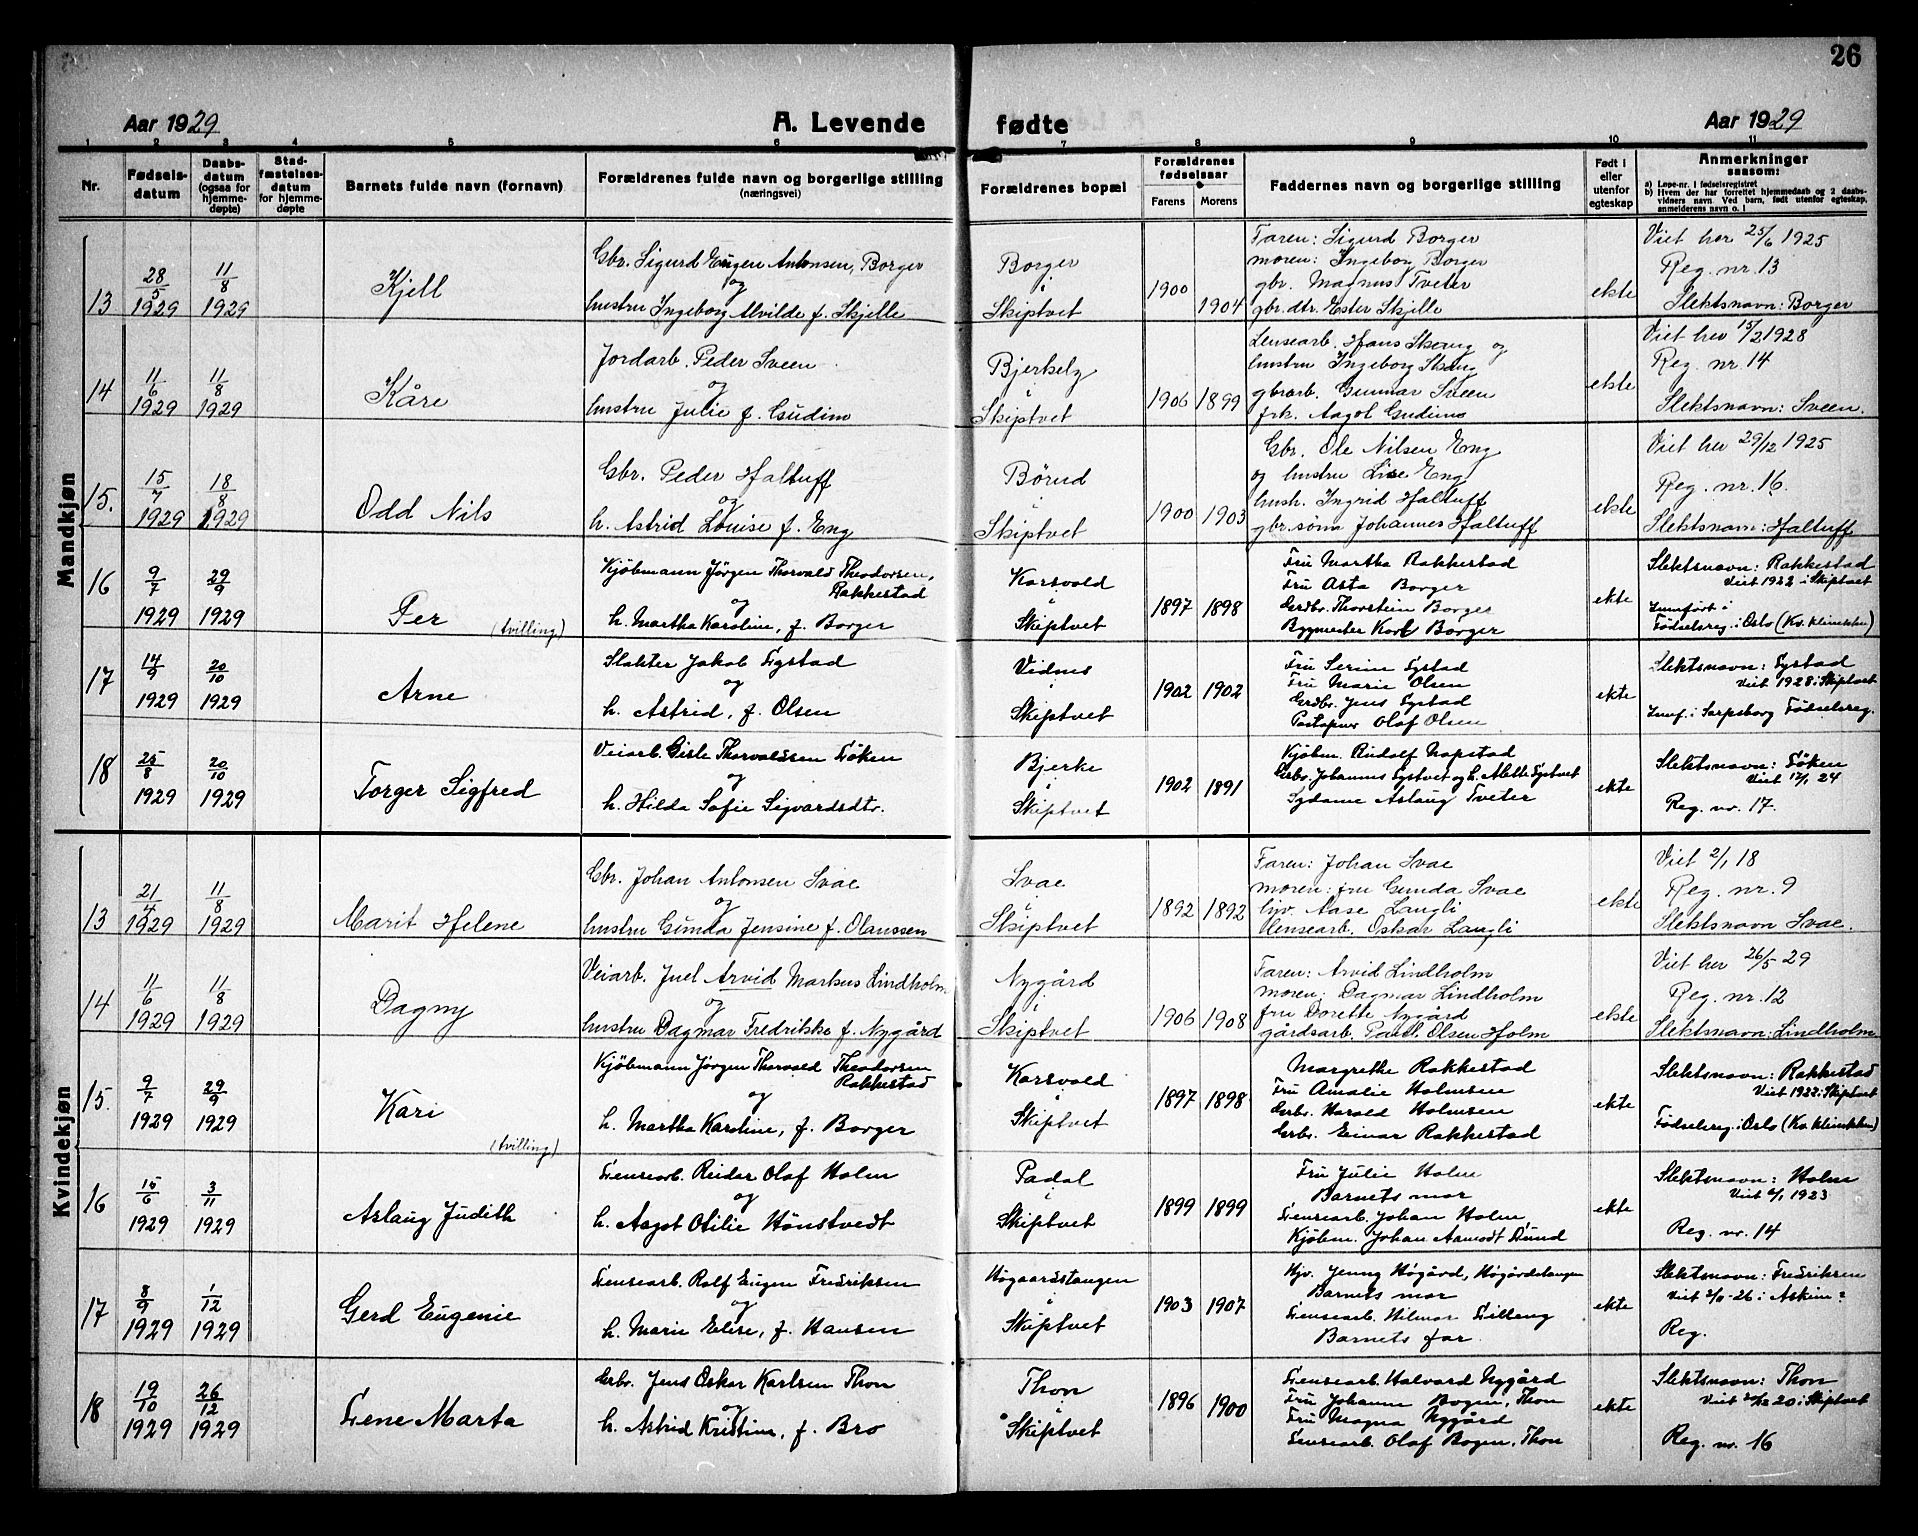 26
Aar 1929
A. Levende
fødte
Aar 1929
1 2 3 4 5 6 7 8 9 10 11
Nr.
Fødsels-
datum
Daabs-
datum
(ogsaa for
hjemme-
døpte)
Stad-
fæstelses-
datum
for hjemme-
døpte
Barnets fulde navn (fornavn)
Forældrenes fulde navn og borgerlige stilling
(næringsvei)
Forældrenes bopæl
Forældrenes
fødselsaar
Farens Morens
Faddernes navn og borgerlige stilling
Født i
eller
utenfor
egteskap
Anmerkninger
saasom:
a) Løpe-nr. i fødselsregistret
b) Hvem der har forrettet hjemmedaab og 2 daabs-
vidners navn. Ved barn, født utenfor egteskap,
anmelderens navn o. l
Mandkjøn
13
28/5 1929
11/8 1929
Kjell
Gbr. Sigurd Eugen Antonsen, Borger
og
hustru Ingeborg Alvilde f. Skjelle
Borger
i
Skiptvet
1900 1904
Faren: Sigurd Borger
moren: Ingeborg Borger
gbr. Magnus Tveter
gbr. dtr. Ester Skjelle
ekte
Viet her 25/6 1925
Reg. nr. 13
Slektsnavn: Borger
14
11/6 1929
11/8 1929
Kåre
Jordarb. Peder Sveen
og
hustru Julie f. Gudim
Bjerkely
i
Skiptvet
1906 1899
Lensearb. Hans Skaug og
hustru Ingeborg Skaug
gbrarb. Gunnar Sveen
frk. Aagot Gudim
ekte
Viet her 15/2 1928
Reg. nr. 14
Slektsnavn: Sveen.
15.
15/7 1929
18/8 1929
Odd Nils
Gbr. Peder Haltuff
og
h. Astrid Louise f. Eng
Børud
i
Skiptvet
1900 1903
Gbr. Ole Nilsen Eng
og hustru Lise Eng
hush. Ingrid Haltuff
gbr. sønn Johannes Haltuff
ekte
Viet her 29/12 1925
Reg. nr. 16.
Slektsnavn: Haltuff
16
9/7 1929
29/9 1929
Per
(tvilling)
Kjöbmann Jörgen Thorvald Theodorsen,
Rakkestad
og
h. Martha Karoline, f. Borger
Korsvold
i
Skiptvet
1897 1898
Fru Martha Rakkestad
Fru Asta Borger
Grdbr. Thorstein Borger
Byggmester Karl Borger
ekte
Slektsnavn: Rakkestad
Viet 1922 i Skiptvet
Innført i
Fødselsreg. i Oslo (Kv. klinikken)
17
14/9 1929
20/10 1929
Arne
Slakter Jakob Eystad
og
h. Astrid, f. Olsen
Vidnes
i
Skiptvet
1902 1902
Fru Marie Olsen
Grdbr. Jens Eystad
Olaf Olsen
ekte
Slektsnavn: Eystad
Viet 1928 i Skiptvet
Innf. i Sarpsborg Fødselsreg.
18
25/8 1929
20/10 1929
Torger Sigfred
Veiarb. Gisle Thorvaldsen Löken
og
h. Hilda Sofie Sigvardsdtr.
Bjerke
i
Skiptvet
1902 1891
Kjöbm. Rudolf Napstad
Sydame Aslaug Tveter
ekte
Slektsnavn: Löken
Viet 12/1 24
Reg. nr. 17.
Kvindekjøn
13
21/4 1929
11/8 1929
Marit Helene
Gbr. Johan Antonsen Svae
og
hustru Gunda Jensine f. Olaussen
Svae
i
Skiptvet
1892 1892
Faren: Johan Svae
moren: fru Gunda Svae
Aase Langli
lensearb. Oskar Langli
ekte
Viet 2/1 18
Reg. nr. 9
Slektsnavn Svae.
14
11/6 1929
11/8 1929
Dagny
Veiarb. Juel Arvid Markus Lindholm
og
hustru Dagmar Fredrikke f. Nygård
Nygård
i
Skiptvet
1906 1908
Faren: Arvid Lindholm
moren: Dagmar Lindholm
fru Dorette Nygård
gårdsarb. Paul Olsen Holm
ekte
Viet her 26/5 29
Reg. nr. 12
Slektsnavn: Lindholm
15.
9/7 1929
29/9 1929
Kari
(tvilling)
Kjöbmann Jörgen Thorvald Theodorsen
Rakkestad
og
h. Martha Karoline, f. Borger
Korsvold
i
Skiptvet
1897 1898
Margrethe Rakkestad
Fru Amalie Holmsen
Grbr. Harald Holmsen
Grbr. Einar Rakkestad
ekte
Slektsnavn: Rakkestad
Viet 1922 i Skiptvet
Fødselsreg. i Oslo (Kv. klinikken)
16
15/6 1929
3/11 1929
Aslaug Judith
Lensearb. Reidar Olaf Holm
og
h. Aagot Otilie Hönstvedt
Padal
i
Skiptvet
1899 1899
Fru Julie Holm
Barnets mor
Lensearb. Johan Holm
Kjöbm. Johan Aamodt Lund
ekte
Slektsnavn: Holm
Viet 1923
Reg. nr. 14
17
8/9 1929
1/12 1929
Gerd Eugenie
Lensearb. Rolf Eugen Fredriksen
og
h. Marie Elise, f. Hansen
Högaardstangen
i
Skiptvet
1903 1907
Jenny Högård, Högårdstangen
Barnets mor
Lensearb. Hilmar Lilleng
Barnets far.
ekte
Slektsnavn: Fredriksen
Viet 26 i Askim
Reg.
18
19/10 1929
26/12 1929
Lene Marta
Grbr. Jens Oskar Karlsen Thon
og
h. Astrid Kristine, f. Bro
Thon
i
Skiptvet
1896 1900
Lensearb. Halvard Nygård
Fru Johanne Bogen, Thon
Fru Magna Nygård
Lensearb. Olaf Bogen, Thon
ekte
Slektsnavn: Thon
Viet 20 i Skiptvet
Reg. nr. 16